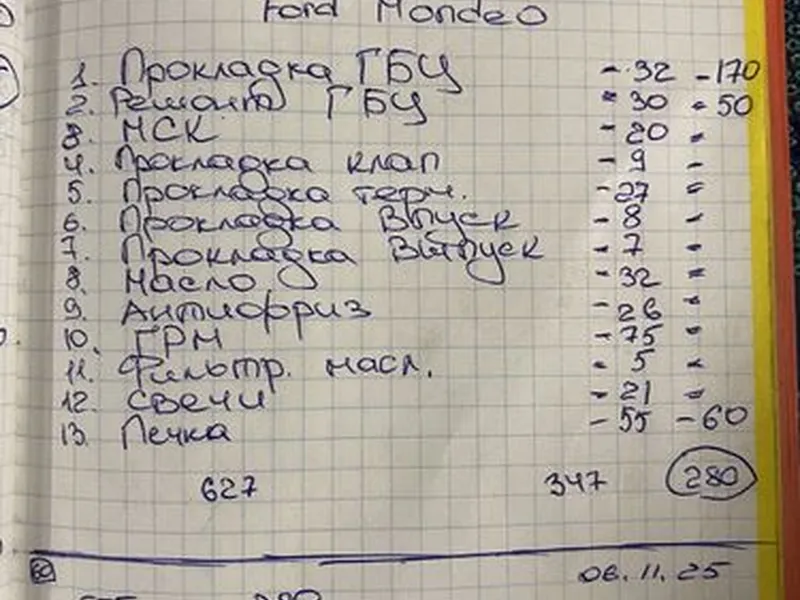 Ford Mondeo
1. Прокладка ГБЦ - 32 - 170
2. Ремонт ГБЦ - 30 - 50
3. МСК - 20 -
4. Прокладка клап - 9 -
5. Прокладка терм. - 27 -
6. Прокладка Впуск - 8 -
7. Прокладка Выпуск - 7 -
8. Масло - 32 -
9. Антифриз - 26 -
10. ГРМ - 75 -
11. Фильтр. масл. - 5 -
12. Свечи - 21 -
13. Печка - 55 - 60
627 347 280
06.11.25